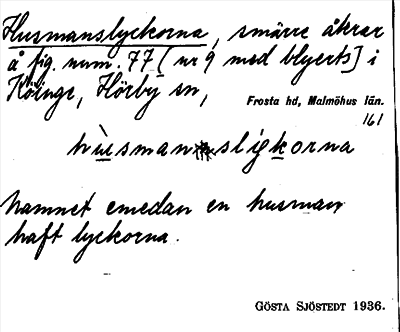 Husmanslyckorna, smärre åkrar
å fig. num. 77 [nr 9 med blyerts] i
Köinge, Hörby sn,
Frosta hd, Malmöhus län.
161
hùsmanslykorna
Namnet emedan en husman
haft lyckorna.
GÖSTA SJÖSTEDT 1936.